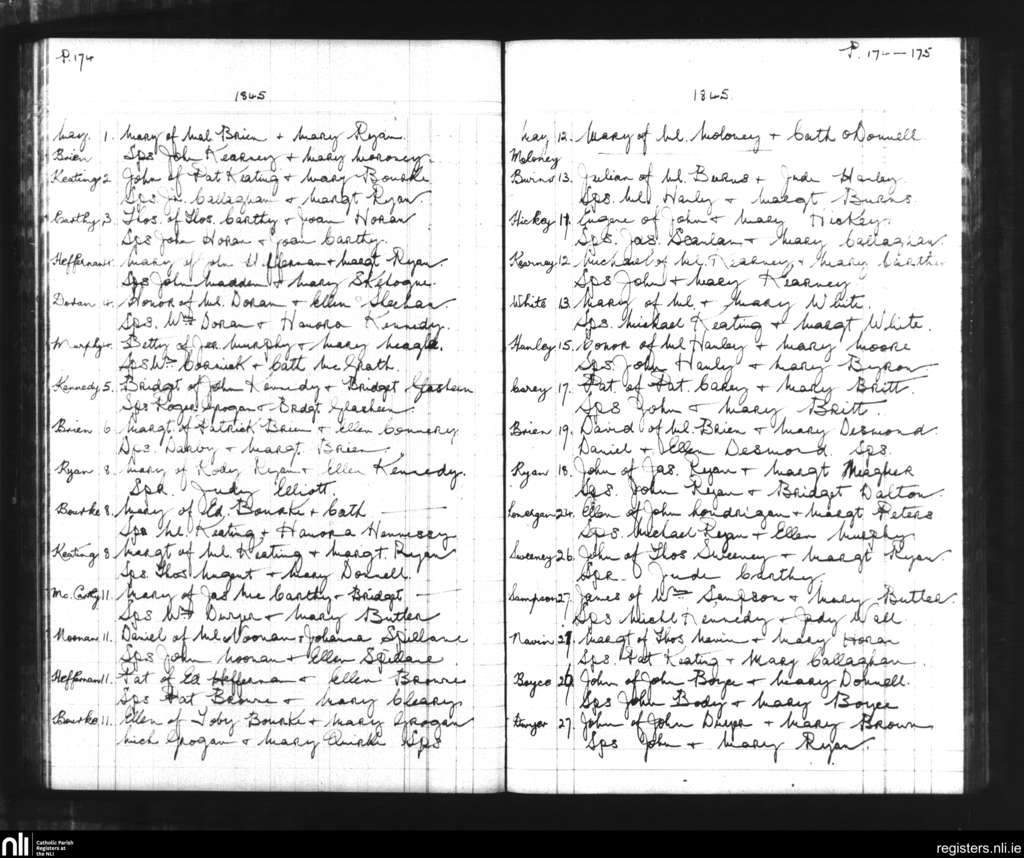 P. 174
1845
May 1. Mary of Mal Brien + Mary Ryan.
Brien Sps John Kearney + Mary Moroney.
Keating 2 John of Pat Keating + Mary Bourke
Sps Jn. Callaghan + Margt Ryan.
Carthy, 3. Thos. of Thos. Carthy + Joan Horan
Sps John Horan + Joan Carthy.
Heffernan 4. Mary of John Heffernan + Margt Ryan.
Sps John Madden + Mary
Doran 4. Honor of Ml. Doran + Ellen Sheehan.
Sps. Wm Doran + Honora Kennedy.
Murphy 4. Betty of Jer. Murphy + Mary Meagh.
Sps Wm Cormick + Cath McGrath.
Kennedy 5. Bridgt of John Kennedy + Bridget Glasheen
Sps Roger Grogan + Bridgt Glasheen.
Brien 6 Margt. of Patrick Brien + Ellen Connery
Sps. Darby + Margt. Brien.
Ryan 8. Mary of Rody Ryan + Ellen Kennedy.
Spr. Judy Elliott.
Bourke 8. Mary of Ed. Bourke + Cath ——
Sps Ml. Keating + Hanora Hennessy
Keating 8 Margt of Ml. Keating + Margt. Ryan
Sps Thos Nugent + Mary Donnell.
Mc. Carthy 11. Mary of Jas Mc Carthy + Bridget ——
Sps Wm Dwyer + Mary Butler
Noonan 11. Daniel of Ml Noonan + Johanna Spillane
Sps John Noonan + Ellen Spillane.
Heffernan 11. Pat of Ed Heffernan + Ellen Browne
Sps Pat Browne + Mary Cleary.
Bourke 11. Ellen of Toby Bourke + Mary Grogan
Mich Grogan + Mary Quirke Sps
P. 174–175
1845.
May, 12. Mary of Ml. Moloney + Cath O'Donnell
Moloney
Burns 13. Julian of Ml Burns + Jude Hanley.
Sps. Ml Hanley + Margt Burns.
Hickey 14 Eugene of John + Mary Hickey.
Sps. Jas. Scanlan + Mary Callaghan.
Kearney 12 Michael of Ml. Kearney + Mary Carthy
Sps John + Mary Kearney
White 13. Mary of Ml + Mary White.
Sps. Michael Keating + Margt White.
Hanley 15. Honor of Ml Hanley + Mary Moore
Sps. John Hanly + Mary Byron
Carey 17. Pat of Pat. Carey + Mary Britt.
Sps John + Mary Britt.
Brien 19. David of Ml. Brien + Mary Desmond.
Daniel + Ellen Desmond Sps.
Ryan 18. John of Jas. Ryan + Margt Meagher
Sps. John Ryan + Bridget Dalton.
Lonergan 24. Ellen of John Londrigan + Margt Peters
Sps. Michael Ryan + Ellen Murphy
Sweeney 26. John of Thos Sweeney + Margt Ryan
Spr. Jude Carthy.
Sampson 27. James of Wm Sampson + Mary Butler.
Sps Michl Kennedy + Judy Wall
Navin 27. Margt of Thos Navin + Mary Horan
Sps. Pat Keating + Mary Callaghan.
Boyce John of John Boyce + Mary Donnell.
Sps John Body + Mary Boyce
Dwyer 27. John of John Dwyer + Mary Brown
Sps John + Mary Ryan.
nli
Catholic Parish
Registers at
the NLI
registers.nli.ie